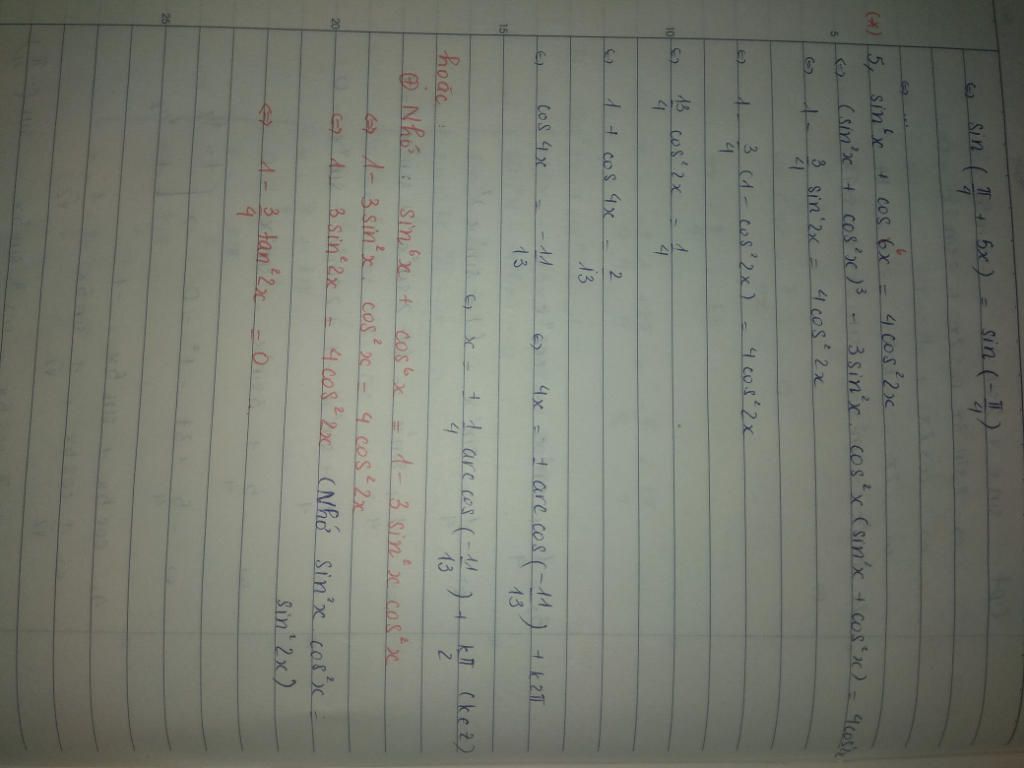 ⇔ sin(π/4 + 5x) = sin(-π/4)
⇔ ...
(*) 5, sin⁶x + cos⁶x = 4cos²2x
⇔ (sin²x + cos²x)³ - 3sin²x cos²x (sin²x + cos²x) = 4cos²2x
⇔ 1 - 3/4 sin²2x = 4cos²2x
⇔ 1 - 3/4 (1 - cos²2x) = 4cos²2x
⇔ 13/4 cos²2x = 1/4
⇔ 1 + cos4x = 2/13
⇔ cos4x = -11/13 ⇔ 4x = ± arccos(-11/13) + k2π
⇔ x = ± 1/4 arccos(-11/13) + kπ/2 (k∈Z)
hoặc:
⊕ Nhớ: sin⁶x + cos⁶x = 1 - 3sin²x cos²x
⇔ 1 - 3sin²x cos²x = 4cos²2x
⇔ 1 - 3sin²2x = 4cos²2x (Nhớ sin²x cos²x =
sin²2x)
⇔ 1 - 3/4 tan²2x = 0
5
10
15
20
25